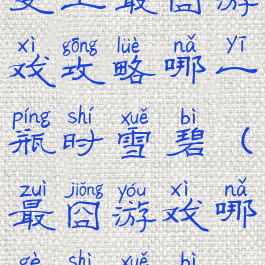 最囧游
xì gōng lüè nǎ yī
戏攻略哪一
píng shí xuě bì
瓶时雪碧（
zuì jiǒng yóu xì nǎ
最囧游戏哪
gè shì xuě bì